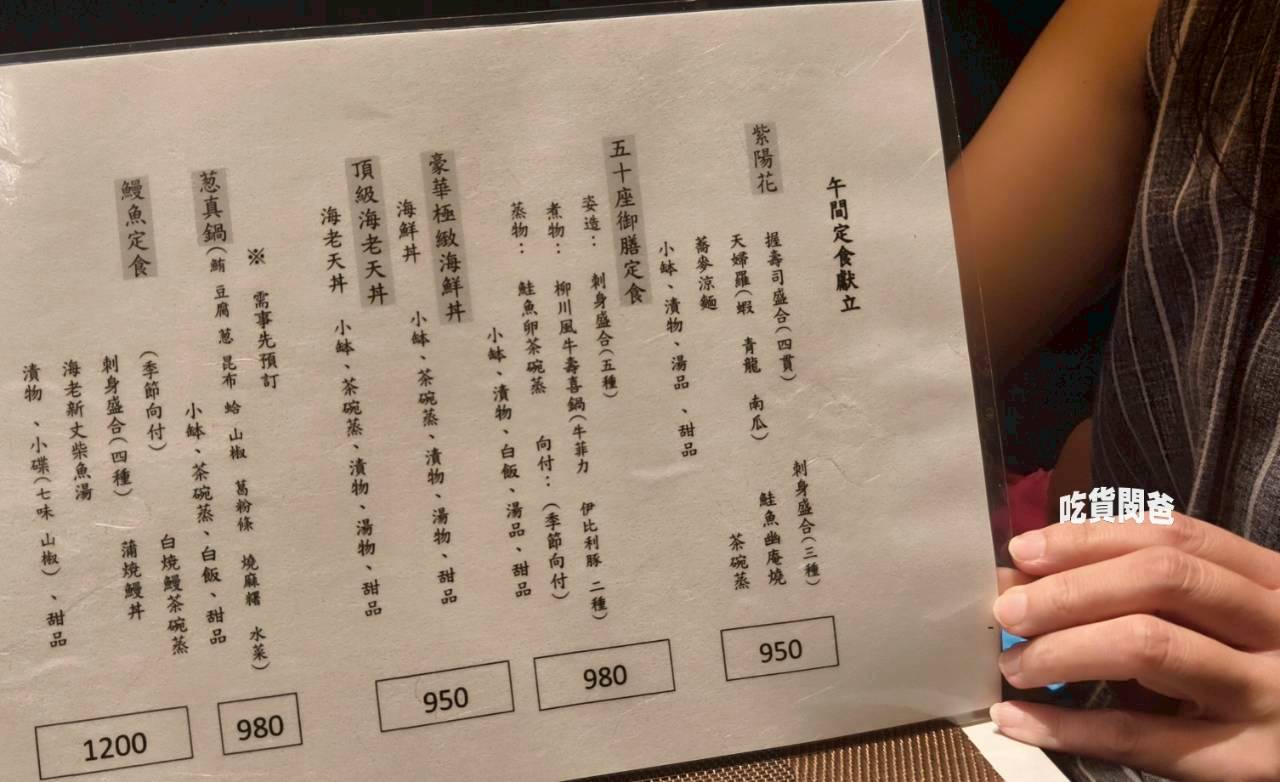 午間定食獻立
紫陽花
握壽司盛合(四貫)　刺身盛合(三種)
天婦羅(蝦　青龍　南瓜)　鮭魚幽庵燒
蕎麥涼麵　茶碗蒸
小缽、漬物、湯品、甜品
950
五十座御膳定食
姿造：　刺身盛合(五種)
煮物：　柳川風牛壽喜鍋(牛菲力　伊比利豚　二種)
蒸物：　鮭魚卵茶碗蒸　向付：(季節向付)
小缽、漬物、白飯、湯品、甜品
980
豪華極緻海鮮丼
海鮮丼　小缽、茶碗蒸、漬物、湯物、甜品
頂級海老天丼
海老天丼　小缽、茶碗蒸、漬物、湯物、甜品
950
※　需事先預訂
葱真鍋(鮪　豆腐　葱　昆布　蛤　山椒　葛粉條　燒麻糬　水菜)
小缽、茶碗蒸、白飯、甜品
980
鰻魚定食
(季節向付)　白燒鰻茶碗蒸
刺身盛合(四種)　蒲燒鰻丼
海老新丈柴魚湯
漬物、小碟(七味　山椒)、甜品
1200
吃貨閔爸